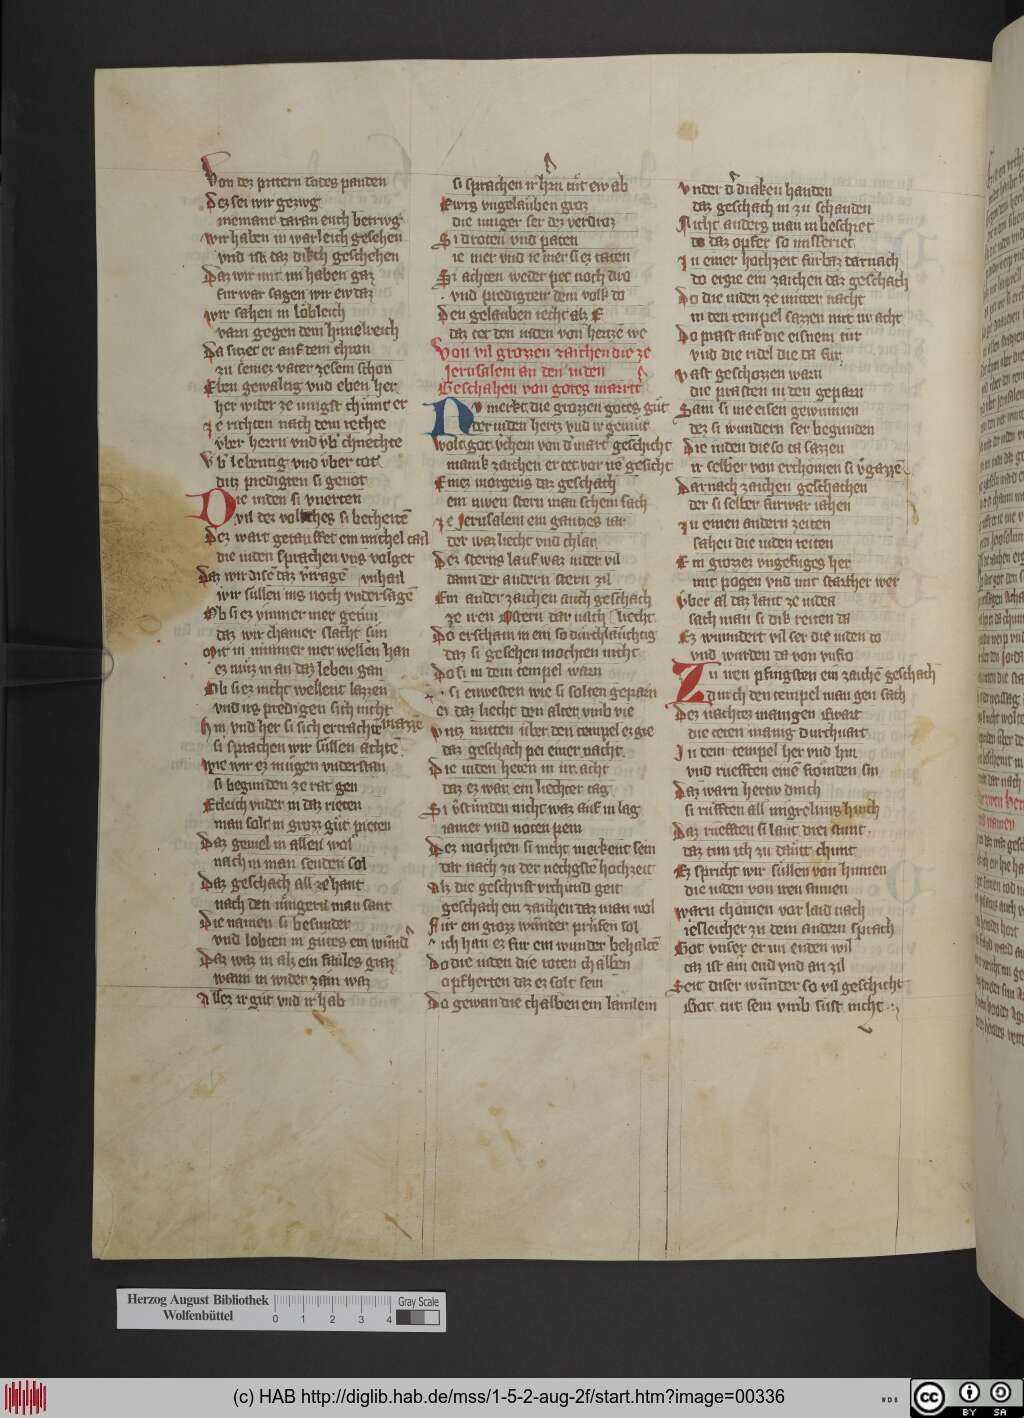 Von dez pittern todes panden
Dez sei wir gezwg
niemant daran euch betrwg
wir haben in warleich gesehen
vnd ist daz dikch geschehen
Daz wir mit im haben gaz
furwar sagen wir ew daz
wir sahen in löbleich
varn gegen dem himelreich
Da sitzet er auf dem thron
zu seinez vater zesem schon
Eben gewaltig vnd eben her
her wider ze iungst chümt er
ze richten nach dem rechte
vber herrn vnd vb chnechte
vb lebentig vnd vber tot
ditz predigten si genot
Die iuden si vuerten
vil dez volkches si becherte
Dez wart getauffet ein michel tail
die iuden sprachen vns volget
Daz wir dise daz vnhail
wir süllen ins noch vndersage
Ob si ez ymmer mer getün
daz wir chamer slacht sün
mit in nimmer mer wellen han
ez müz in an daz leben gan
Ob si ez nicht wellent lazzen
vnd irs predigen sich nicht mazze
hin vnd her si sich ertrachte
si sprachen wir süllen achte
wie wir ez mügen vnderstan
si begunden ze rat gen
Etleich vnder in daz rieten
man solt in grozz güt pieten
Daz geuiel in allen wol
nach in man senden sol
Daz geschach all ze hant
nach den iungern man sant
Die namen si besunder
vnd lobten in gutes ein wund
Daz waz in alz ein faules graz
wann in wider zäm waz
Allez ir güt vnd ir hab
si sprachen ir hin tüt ew ab
Ewrs vngelauben groz
die iunger ser dez verdroz
Si droten vnd paten
ie mer vnd ie mer si ez taten
Si achten weder pet noch dro
vnd predigten dem volk do
Den gelauben recht alz E
daz tet den iuden von hertze we
Von vil grozzen zaichen die ze
Jerusalem an den iuden
Geschahen von gotes martt
Nv merkt die grozzen gotes güt
der iuden hertz vnd ir gemüt
wolt got vchem von d mart geschicht
manik zaichen er tet vor ue gesicht
Einez morgens daz geschach
ein niwen stern man schein sach
ze Jerusalem ein gantzes iar
der waz liecht vnd chlar
Dez sterns lauf waz nider vil
dann der andern stern zil
Ein ander zaichen auch geschach
ze iren Ostern dar nach liecht
Do erschain in ein so durchlauchtig
daz si gesehen mochten nicht
Do si in dem tempel warn
si enwesten wie si solten geparn
Er daz liecht den alter vmb vie
vntz mitten über den tempel ez gie
daz geschach pei einer nacht
Die iuden heten in ir acht
daz ez war ein liechter tag
Si v̓stünden nicht waz auf in lag
iamer vnd noten pein
Dez mochten si nicht merkent sein
dar nach zu der nechgste hochzeit
Alz die geschrift vrchund geit
geschach ein zaichen daz man wol
Für ein grozz wunder prüfen sol
ich han ez für ein wunder behalte
Do die iuden die roten chalben
opfherten daz ez solt sein
Do gewan die chalben ein lämlein
vnder d diaken handen
daz geschach in zu schanden
Nicht anders man in beschriet
do daz opfer so missteriet
In einer hochzeit fürbaz darnach
do ergie ein zaichen daz geschach
Do die iuden ze mitter nacht
in den tempel sazzen mit ir acht
Do prast auf die eisnein tür
vnd die ridel die da für
vast geschozzen warn
die prasten in den geparn
Sam si nie eisen gewunnen
dez si wundern ser begunden
Die iuden die so da sazzen
ir selber von erchomen si vgazze
Darnach zaichen geschachen
der si selber fürwar iahen
zu einen andern zeiten
sahen die iuden reiten
Ein grozzez vngefüges her
mit pogen vnd mit starkher wer
vber al daz lant ze iudea
sach man si dik reiten da
Ez wundert vil ser die iuden do
vnd wurden da von vnfro
Zu iren pfingsten ein zaiche geschach
durch den tempel man gen sach
Dez nachtez mänigen ewart
die teten mänig durchuart
In dem tempel her vnd hin
vnd rueften eine fröinden sin
Daz warn hertiv dinch
si rufften all migreliius hinch
Daz ruefften si laut drei stunt
daz tun ich zu dautt chunt
Ez spricht wir süllen von hinnen
die iuden von iren sinnen
warn chomen vor laid nach
iesleicher zu dem andern sprach
Got vnser er nu enden wil
daz ist ain end vnd an zil
Seit diser wunder so vil geschicht
Got tut sein vmb süst nicht
Herzog August Bibliothek
Wolfenbüttel
0 1 2 3 4
Gray Scale
(c) HAB http://diglib.hab.de/mss/1-5-2-aug-2f/start.htm?image=00336
cc BY SA